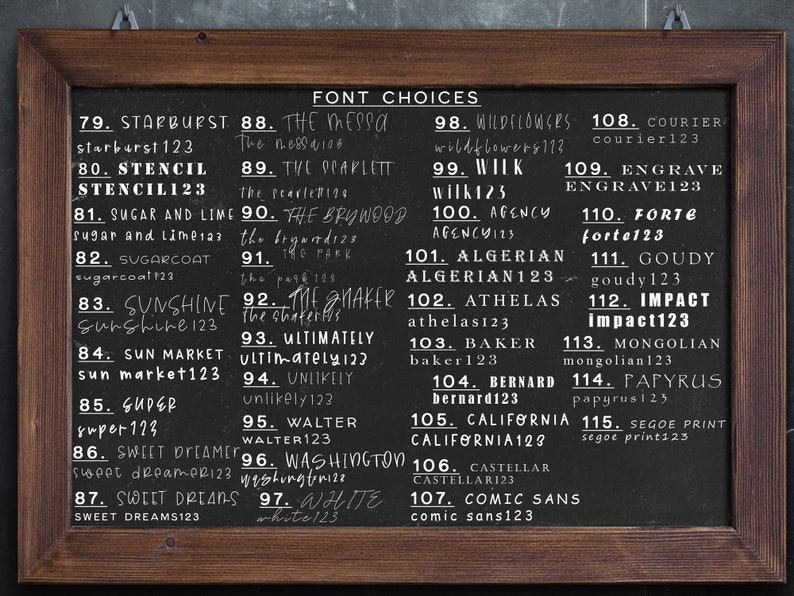 FONT CHOICES
79. STARBURST
starburst123
80. STENCIL
STENCIL123
81. SUGAR AND LIME
sugar and lime123
82. SUGARCOAT
sugarcoat123
83. SUNSHINE
sunshine123
84. SUN MARKET
sun market123
85. SUPER
super123
86. SWEET DREAMER
sweet dreamer123
87. SWEET DREAMS
SWEET DREAMS123
88. THE MESSA
the messa123
89. THE SCARLETT
the scarlett123
90. THE BRYWOOD
the brywood123
91. THE PARK
the park123
92. THE SHAKER
the shaker123
93. ULTIMATELY
ultimately123
94. UNLIKELY
unlikely123
95. WALTER
WALTER123
96. WASHINGTON
washington123
97. WHITE
white123
98. WILDFLOWERS
wildflowers123
99. WILK
wilk123
100. AGENCY
AGENCY123
101. ALGERIAN
ALGERIAN123
102. ATHELAS
athelas123
103. BAKER
baker123
104. BERNARD
bernard123
105. CALIFORNIA
CALIFORNIA123
106. CASTELLAR
CASTELLAR123
107. COMIC SANS
comic sans123
108. COURIER
courier123
109. ENGRAVE
ENGRAVE123
110. FORTE
forte123
111. GOUDY
goudy123
112. IMPACT
impact123
113. MONGOLIAN
mongolian123
114. PAPYRUS
papyrus123
115. SEGOE PRINT
segoe print123